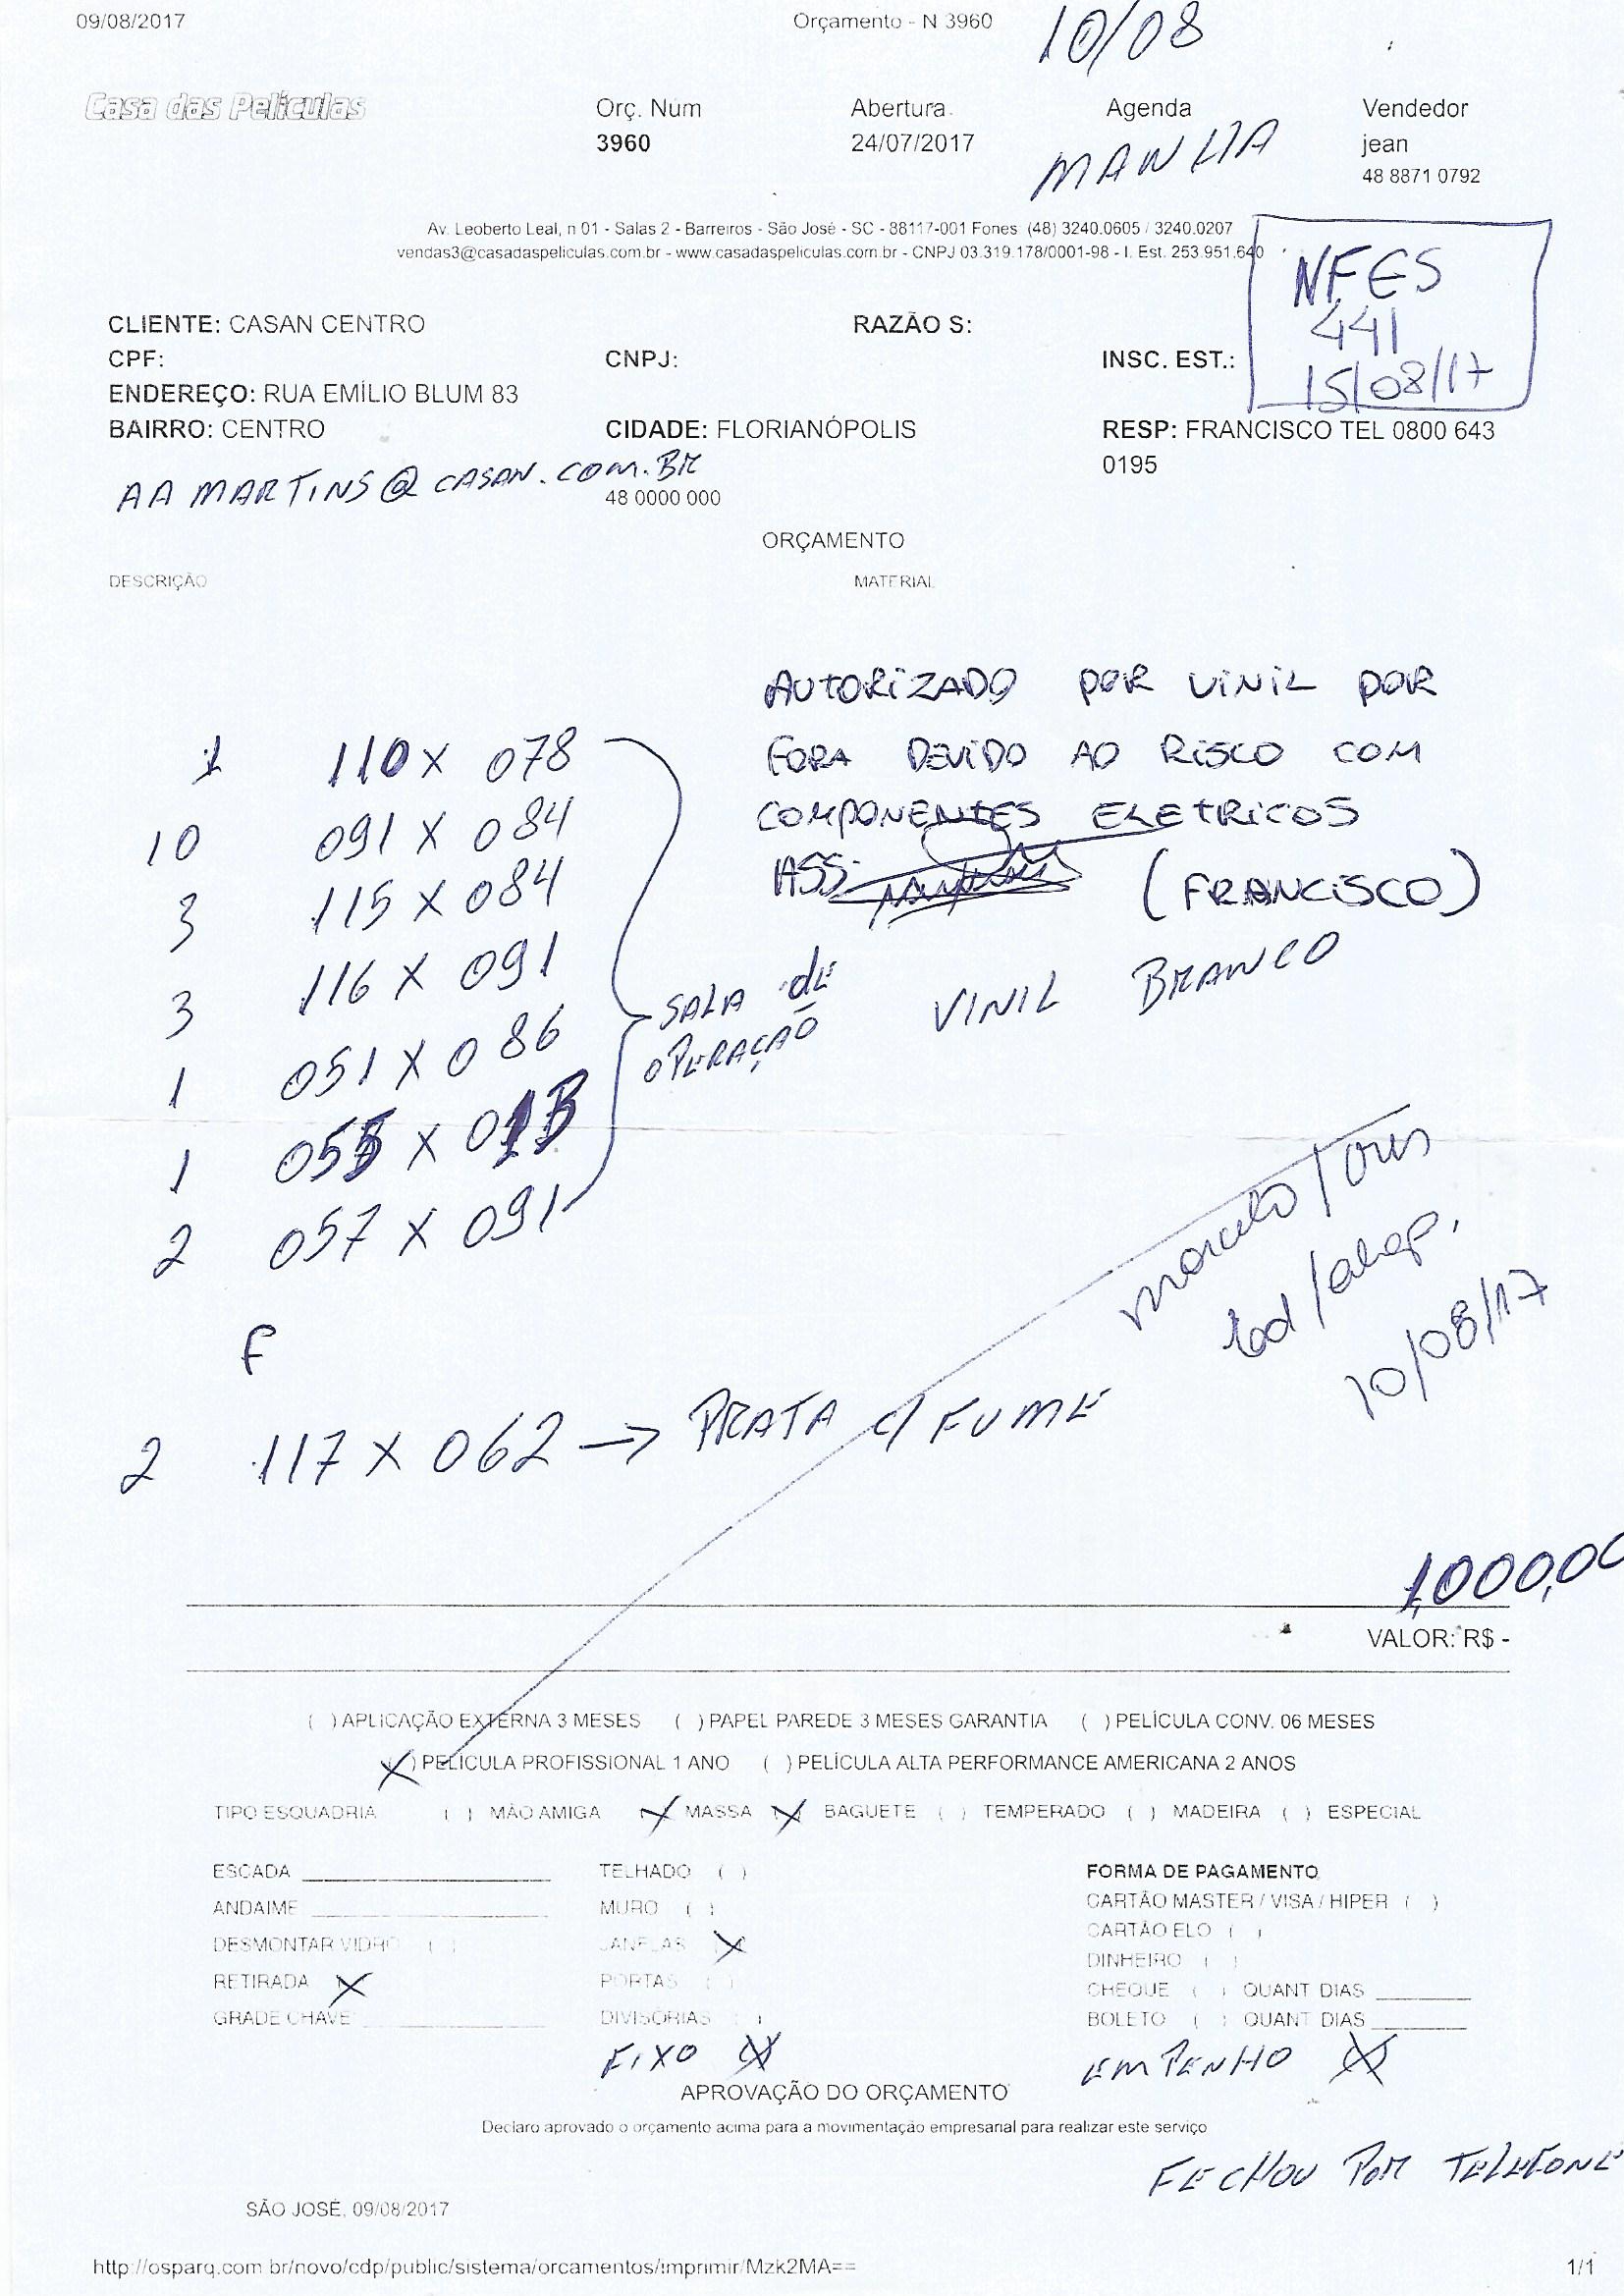 09/08/2017 Orçamento - N 3960 10/08
Casa das Películas Orç. Núm Abertura Agenda Vendedor
3960 24/07/2017 MANHA jean
48 8871 0792
Av. Leoberto Leal, n 01 - Salas 2 - Barreiros - São José - SC - 88117-001 Fones: (48) 3240.0605 / 3240.0207
vendas3@casadaspeliculas.com.br - www.casadaspeliculas.com.br - CNPJ 03.319.178/0001-98 - I. Est. 253.951.640
NFES
441
15/08/17
CLIENTE: CASAN CENTRO RAZÃO S:
CPF: CNPJ: INSC. EST.:
ENDEREÇO: RUA EMÍLIO BLUM 83
BAIRRO: CENTRO CIDADE: FLORIANÓPOLIS RESP: FRANCISCO TEL 0800 643
0195
AAMARTINS@CASAN.COM.BR
48 0000 000
ORÇAMENTO
DESCRIÇÃO MATERIAL
AUTORIZADO POR VINIL POR
FORA DEVIDO AO RISCO COM
COMPONENTES ELETRICOS
ASS: (FRANCISCO)
VINIL BRANCO
1 110 X 078
10 091 X 084
3 115 X 084
3 116 X 091
1 051 X 086
1 055 X
2 057 X 091
SALA DE
OPERAÇAO
F
10/08/17
2 117 X 062 → PRATA C/ FUME
1.000,00
VALOR: R$ -
( ) APLICAÇÃO EXTERNA 3 MESES ( ) PAPEL PAREDE 3 MESES GARANTIA ( ) PELÍCULA CONV. 06 MESES
(X) PELÍCULA PROFISSIONAL 1 ANO ( ) PELÍCULA ALTA PERFORMANCE AMERICANA 2 ANOS
TIPO ESQUADRIA ( ) MÃO AMIGA (X) MASSA (X) BAGUETE ( ) TEMPERADO ( ) MADEIRA ( ) ESPECIAL
ESCADA TELHADO ( ) FORMA DE PAGAMENTO
ANDAIME MURO ( ) CARTÃO MASTER / VISA / HIPER ( )
DESMONTAR VIDRO ( ) JANELAS (X) CARTÃO ELO ( )
RETIRADA (X) PORTAS ( ) DINHEIRO ( )
GRADE CHAVE DIVISÓRIAS ( ) CHEQUE ( ) QUANT DIAS
BOLETO ( ) QUANT DIAS
FIXO (X) EMPENHO (X)
APROVAÇÃO DO ORÇAMENTO
Declaro aprovado o orçamento acima para a movimentação empresarial para realizar este serviço
FECHOU POR TELEFONE
SÃO JOSÉ, 09/08/2017
http://osparq.com.br/novo/cdp/public/sistema/orcamentos/imprimir/Mzk2MA== 1/1